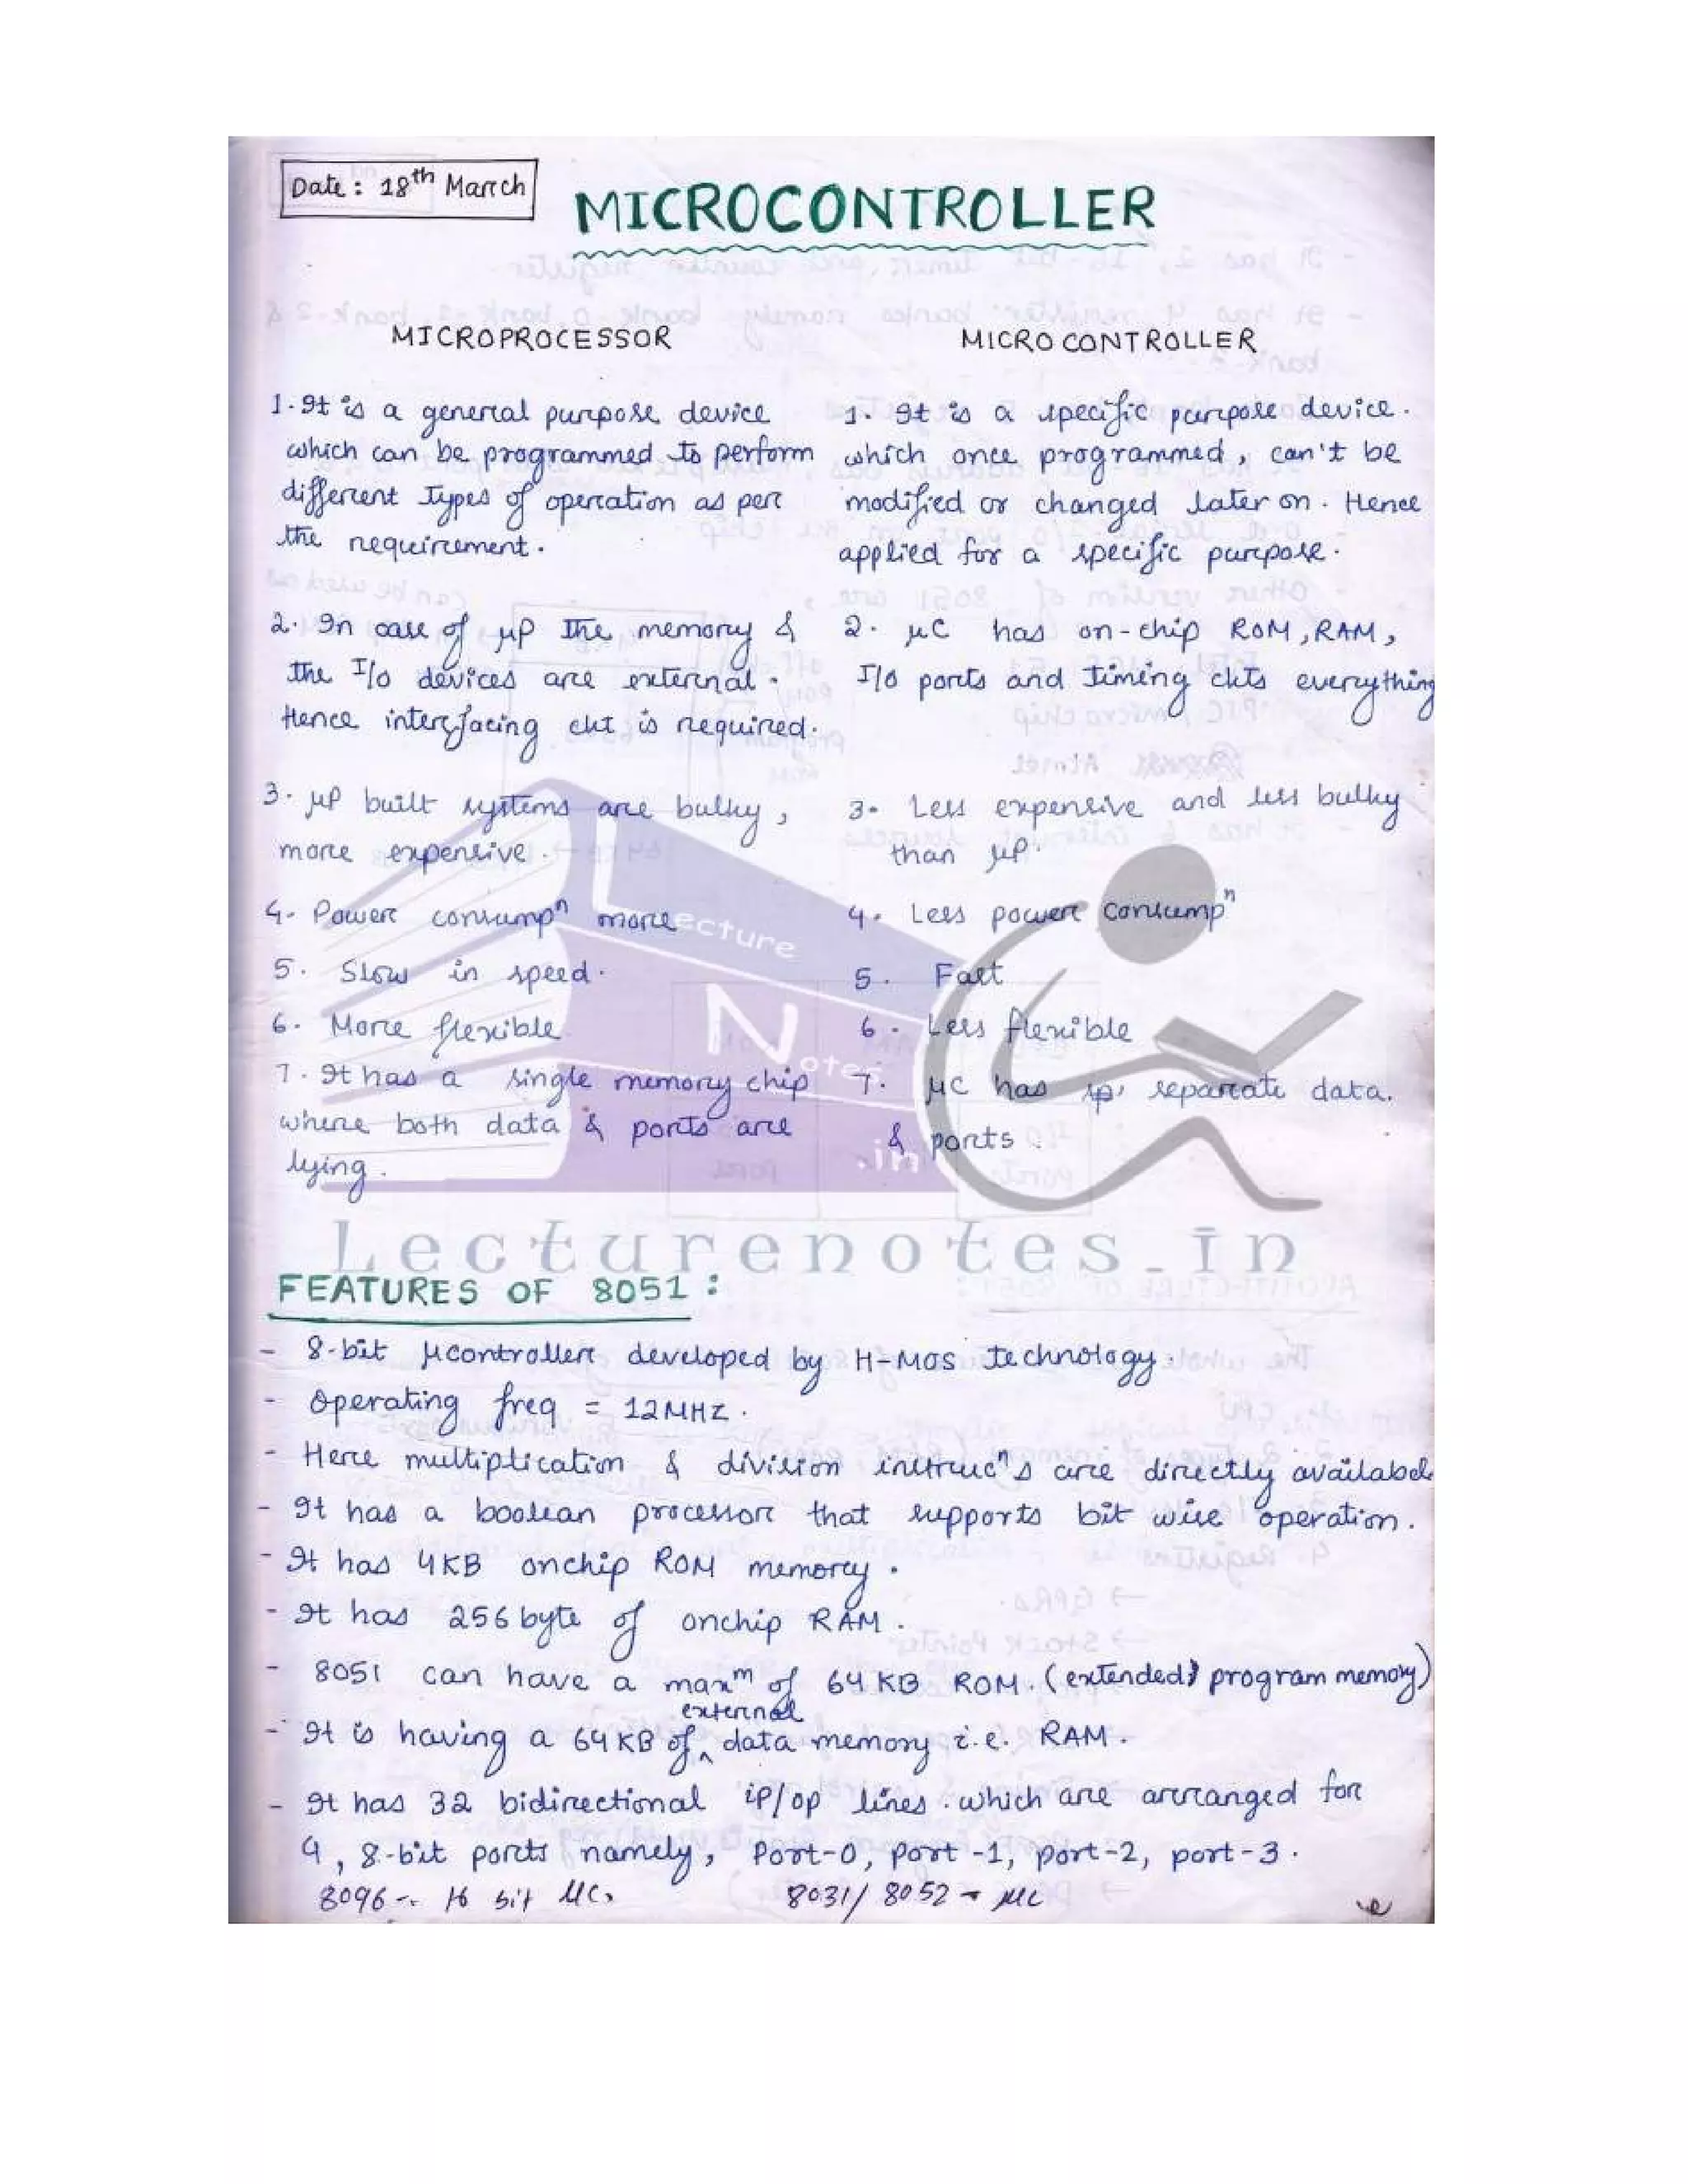 Date: 18th March
MICROCONTROLLER
MICROPROCESSOR
1. It is a general purpose device
which can be programmed to perform
different types of operation as per
the requirement.
2. In case of μP the memory &
the I/o devices are external.
Hence interfacing ckt is required.
3. μP built systems are bulky,
more expensive.
4. Power consumpn more
5. Slow in speed.
6. More flexible
7. It has a single memory chip
where both data & ports are
lying.
MICROCONTROLLER
1. It is a specific purpose device.
which once programmed, can't be
modified or changed later on. Hence
applied for a specific purpose.
2. μC has on-chip ROM, RAM,
I/o ports and timing ckts everything
3. Less expensive and less bulky
than μP.
4. Less power consumpn
5. Fast
6. Less flexible
7. μC has separate data.
& ports.
Lecture
Notes
.in
Lecturenotes.in
FEATURES OF 8051:
- 8-bit μcontroller developed by H-MOS technology.
- Operating freq = 12MHz.
- Here multiplication & division instrucn's are directly availabel
- It has a boolean processor that supports bit wise operation.
- It has 4KB onchip ROM memory.
- It has 256 byte of onchip RAM.
- 8051 can have a maxm of 64 KB ROM. (extended program memory)
- It is having a 64 KB of external data memory i.e. RAM.
- It has 32 bidirectional ip/op lines. which are arranged for
4, 8-bit ports namely, Port-0, port-1, port-2, port-3.
8096 -. 16 bit μC, 8031/8052 → μC